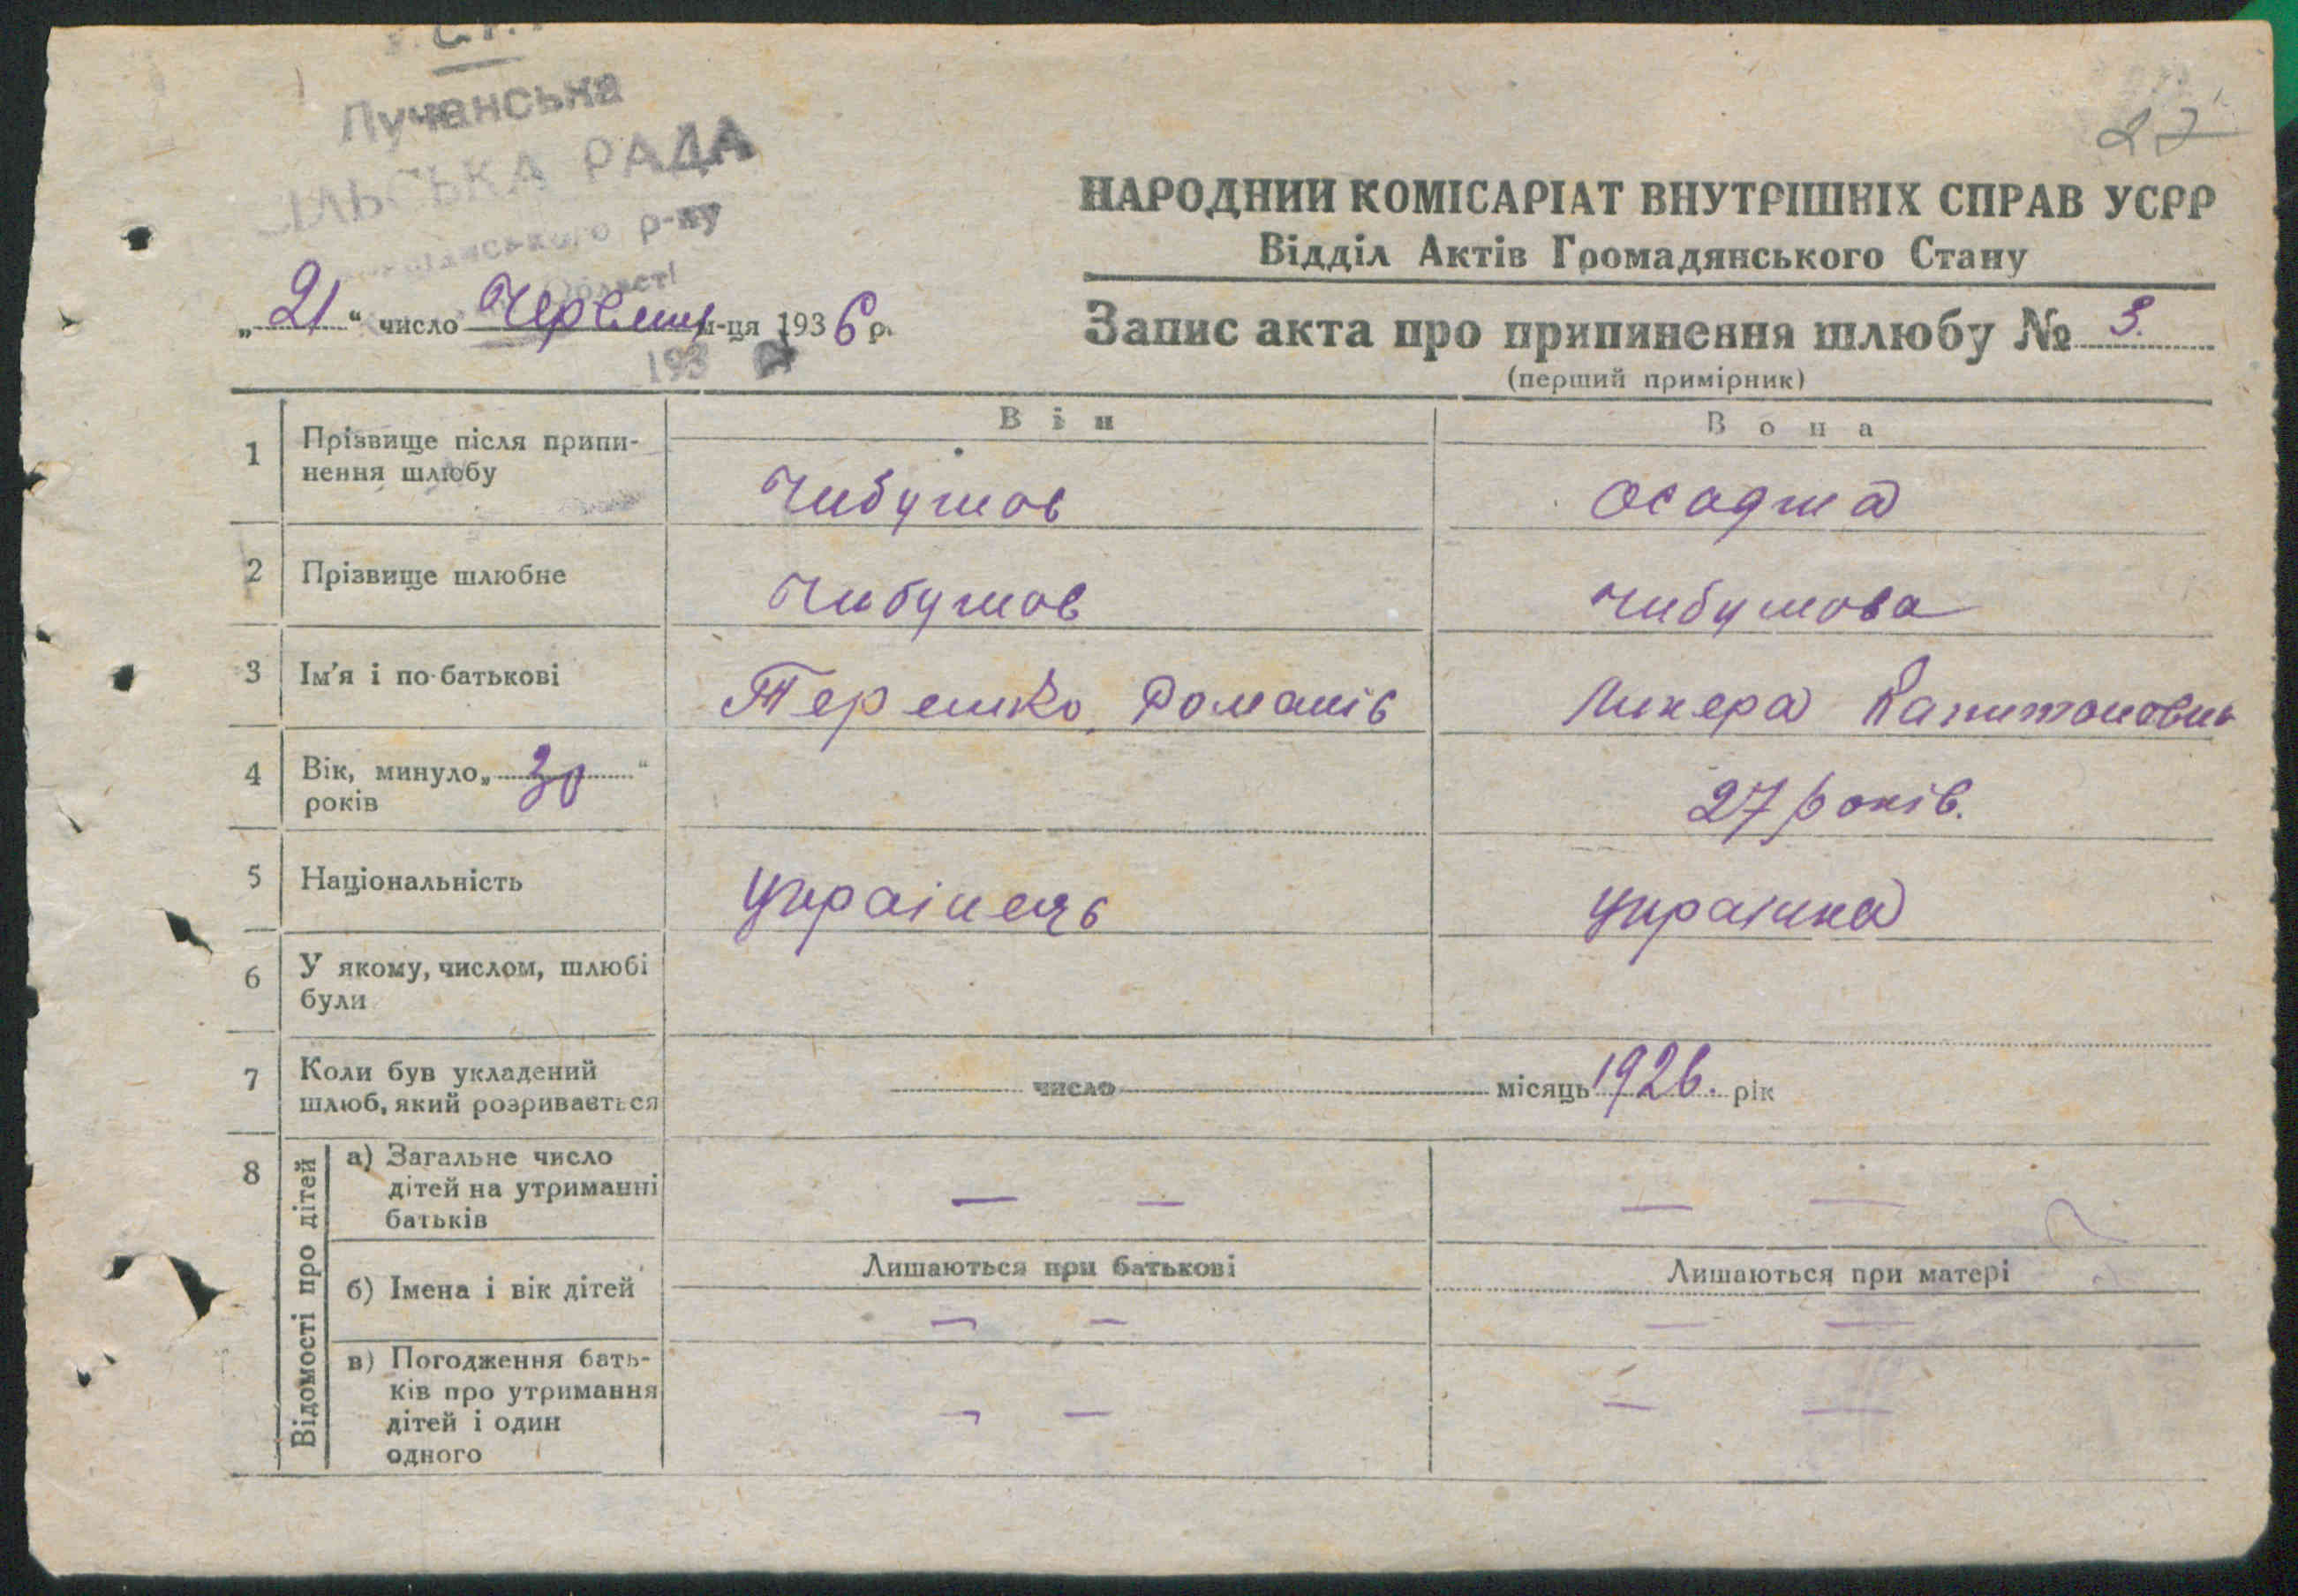 Лучанська
СІЛЬСЬКА РАДА
р-ну
Області
193
27
НАРОДНИЙ КОМІСАРІАТ ВНУТРІШНІХ СПРАВ УСРР
Відділ Актів Громадянського Стану
„21“ число Червень м-ця 1936 р.
Запис акта про припинення шлюбу № 3.
(перший примірник)
Він
Вона
1 Прізвище після припи-
нення шлюбу
Чибушов
Осадша
2 Прізвище шлюбне
Чибушов
Чибушова
3 Ім'я і по-батькові
Терешко Романів
Ликера Капитоновна
4 Вік, минуло „30“
років
27 років.
5 Національність
Українець
Українка
6 У якому, числом, шлюбі
були
7 Коли був укладений
шлюб, який розривається
число місяць 1926. рік
8 Відомості про дітей
а) Загальне число
дітей на утриманні
батьків
— —
— —
б) Імена і вік дітей
Лишаються при батькові
Лишаються при матері
— —
— —
в) Погодження бать-
ків про утримання
дітей і один
одного
— —
— —